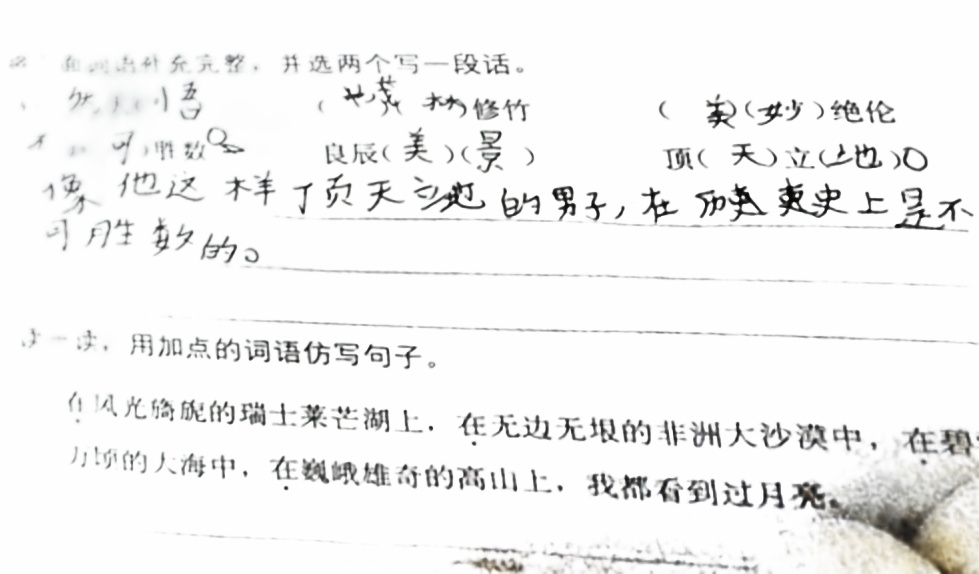 面词语补充完整，并选两个写一段话。
然 悟 （ 茂 林）修竹 （ 美）（妙）绝伦
不 可）胜数 良辰（美）（景） 顶（天）立（地）
像他这样顶天立地的男子，在历 史上是不
可胜数的。
读一读，用加点的词语仿写句子。
在风光旖旎的瑞士莱芒湖上，在无边无垠的非洲大沙漠中，在碧
万顷的大海中，在巍峨雄奇的高山上，我都看到过月亮。